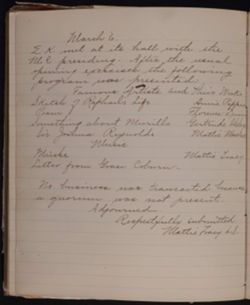 March 6
E.K. met at its hall with the
M.C. presiding. After the usual
opening exercises the following
program was presented
Famous Artists and
Sketch of Raphael's Life Annie
Poem Florence
Something about Murillo Gertrude
Sir Joshua Reynolds Mattie
Music
Music Mattie Tracy
Letter from Grace Coburn.
No business was transacted because
a quorum was not present.
Adjourned.
Respectfully submitted
Mattie Tracy